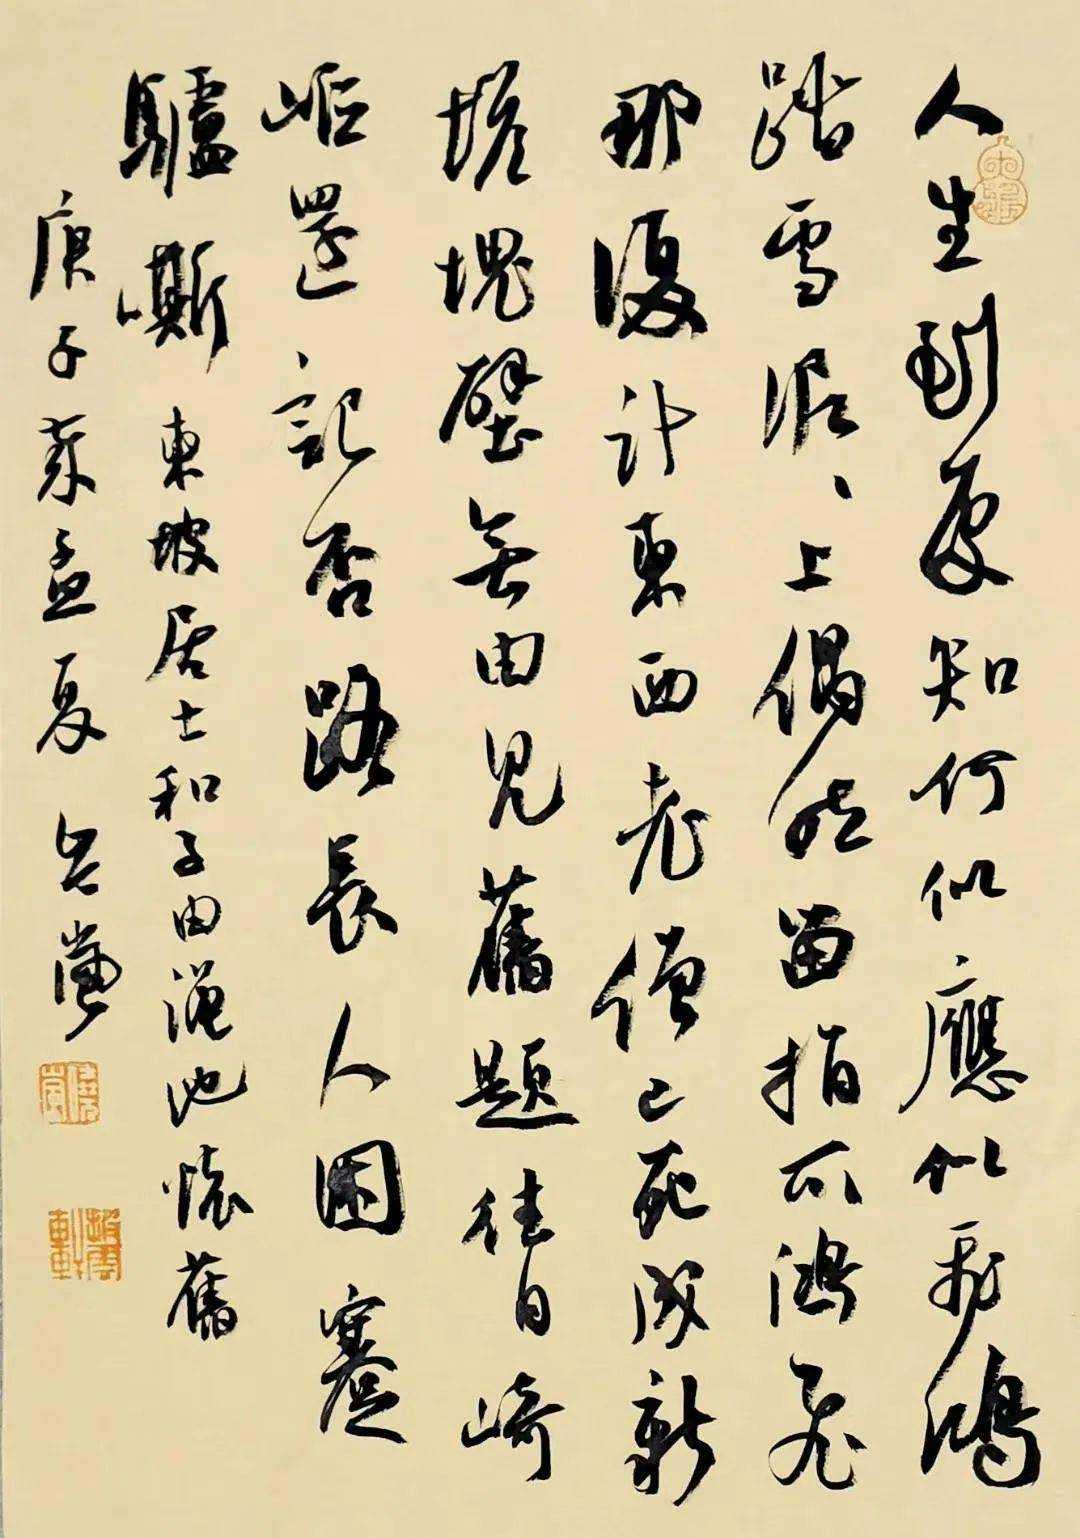 人生到處知何似應似飛鴻
踏雪泥、上偶然留指爪鴻飛
那復計東西老僧已死成新
塔塊壁無由見舊題往日崎
嶇還記否路長人困蹇
驢嘶 東坡居士和子由澠池懷舊
庚子孟夏